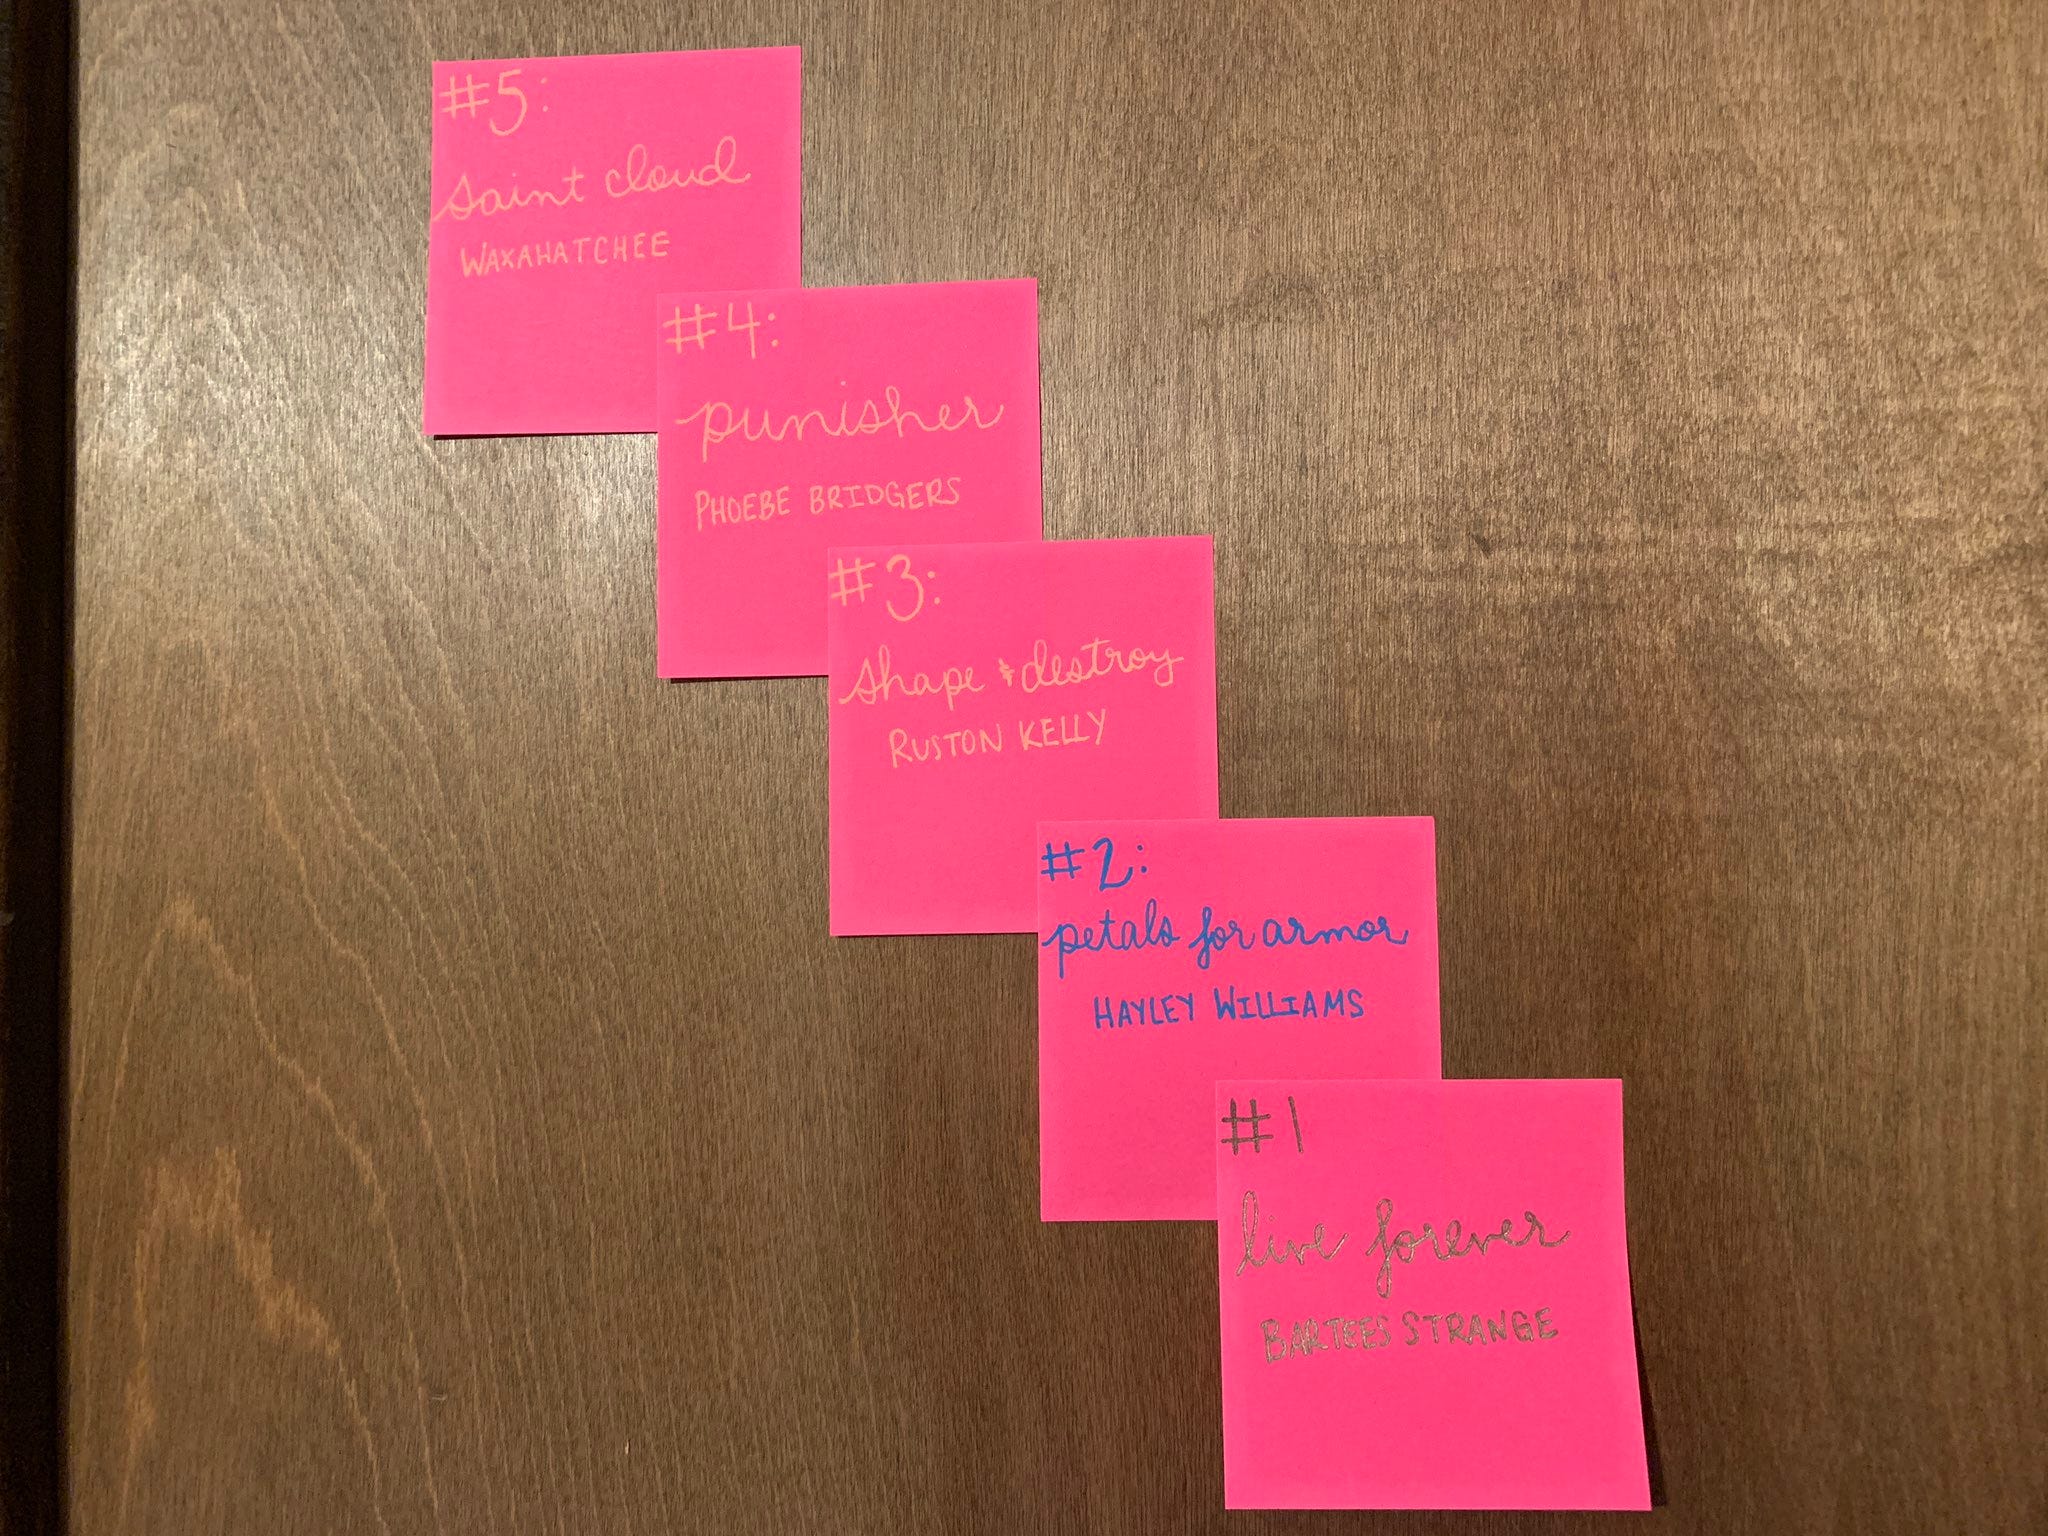 #5:
saint cloud
WAXAHATCHEE
#4:
punisher
PHOEBE BRIDGERS
#3:
shape & destroy
RUSTON KELLY
#2:
petals for armor
HAYLEY WILLIAMS
#1
live forever
BARTEES STRANGE